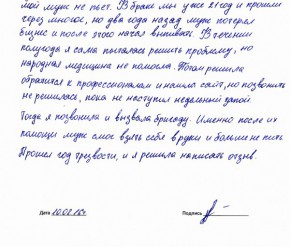 мой муж не пьет. В браке мы уже 21 год и прошли
через многое, но два года назад муж потерял
бизнес и после этого начал выпивать. В течении
полугода я сама пыталась решить проблему, но
народная медицина не помогла. Потом решила
обратится к профессионалам и нашла сайт, но позвонить
не решилась, пока не наступил недельный запой.
Тогда я позвонила и вызвала бригаду. Именно после их
помощи муж смог взять себя в руки и больше не пить.
Прошел год трезвости, и я решила написать отзыв.
Дата 10.08.16г Подпись